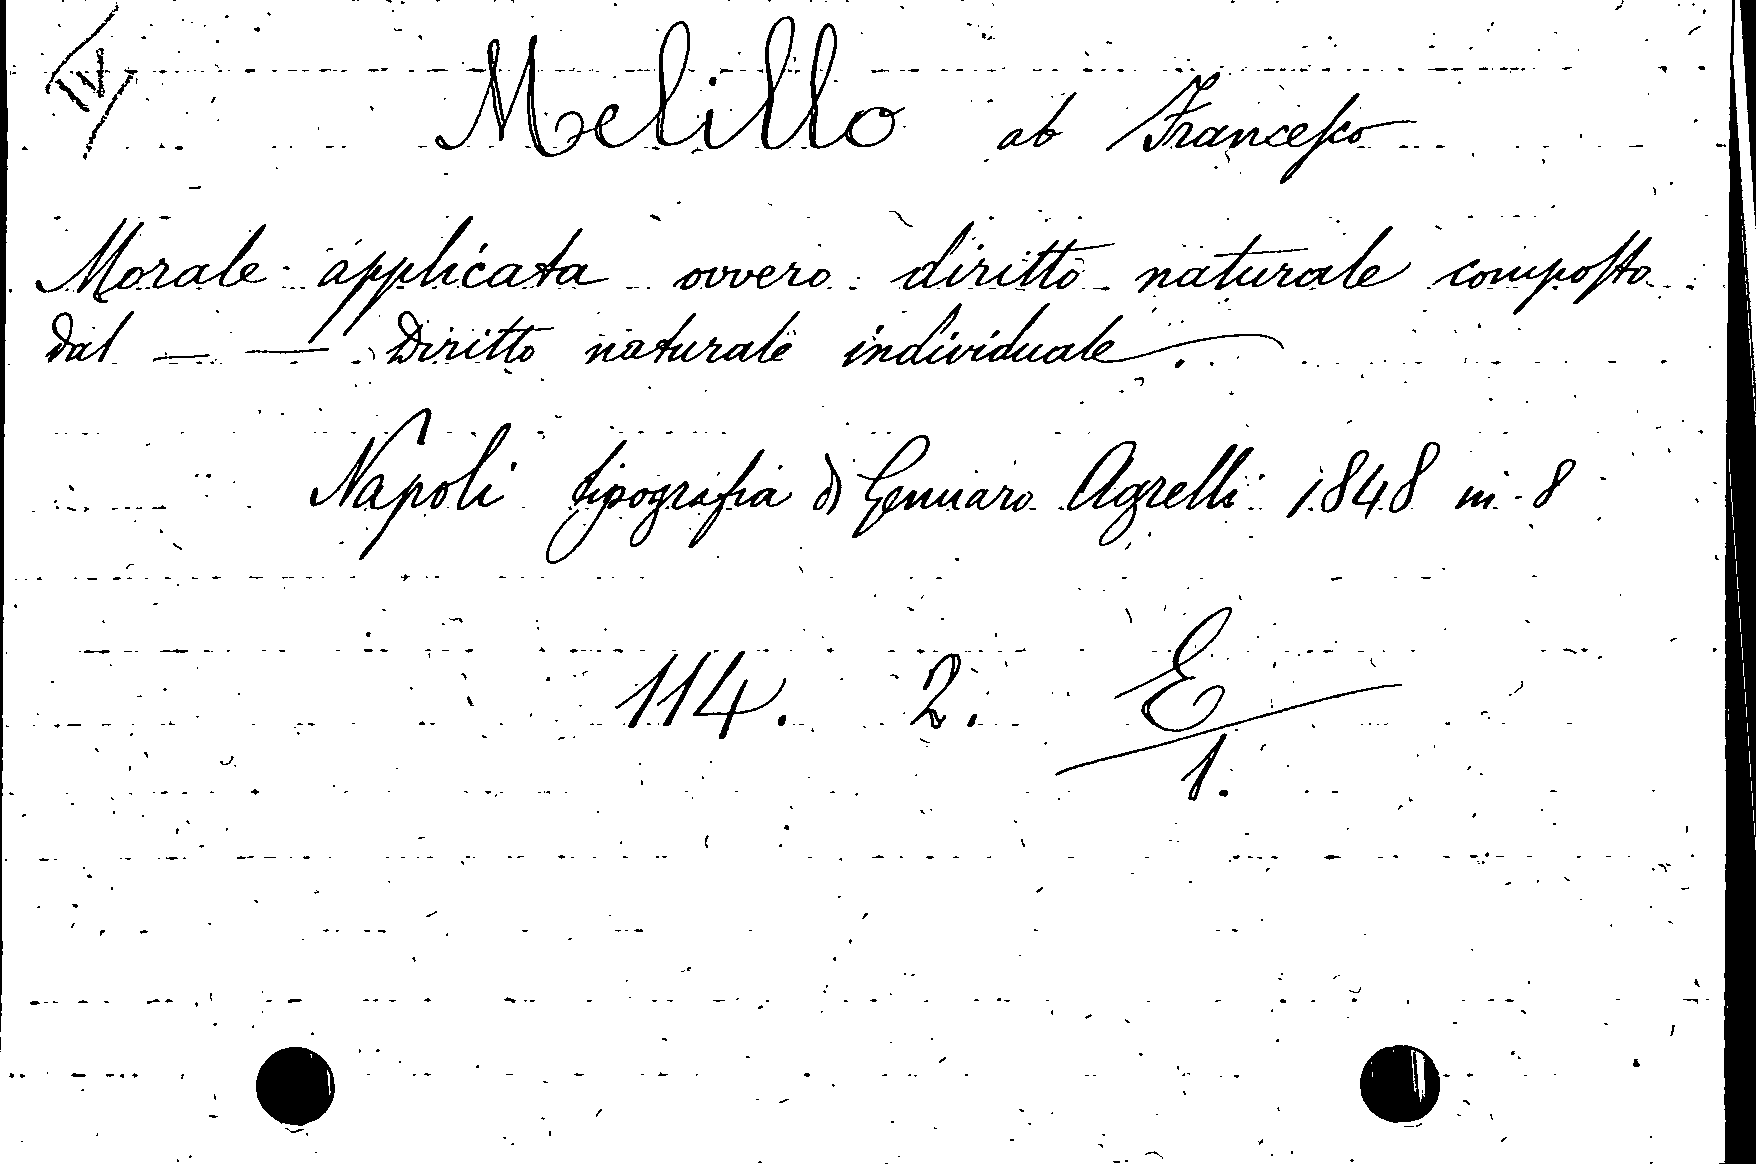 IV
Melillo ab Francesco
Morale applicata ovvero diritto naturale composto
dal — — Diritto naturale individuale.
Napoli tipografia di Gennaro Agrelli 1848 in 8
114. 2. E
1.